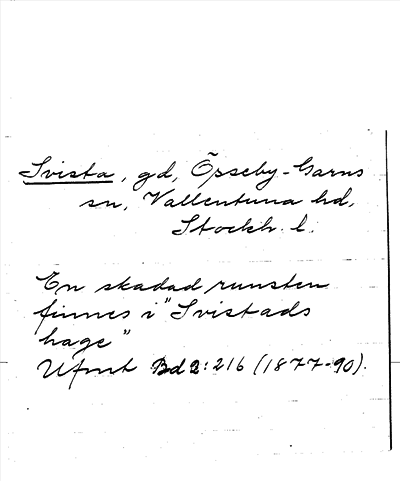 Svista, gd, Össeby-Garns
sn, Vallentuna hd,
Stockh. l.
En skadad runsten
finnes i "Svistads
hage"
Ufmt Bd 2: 216 (1877-90).